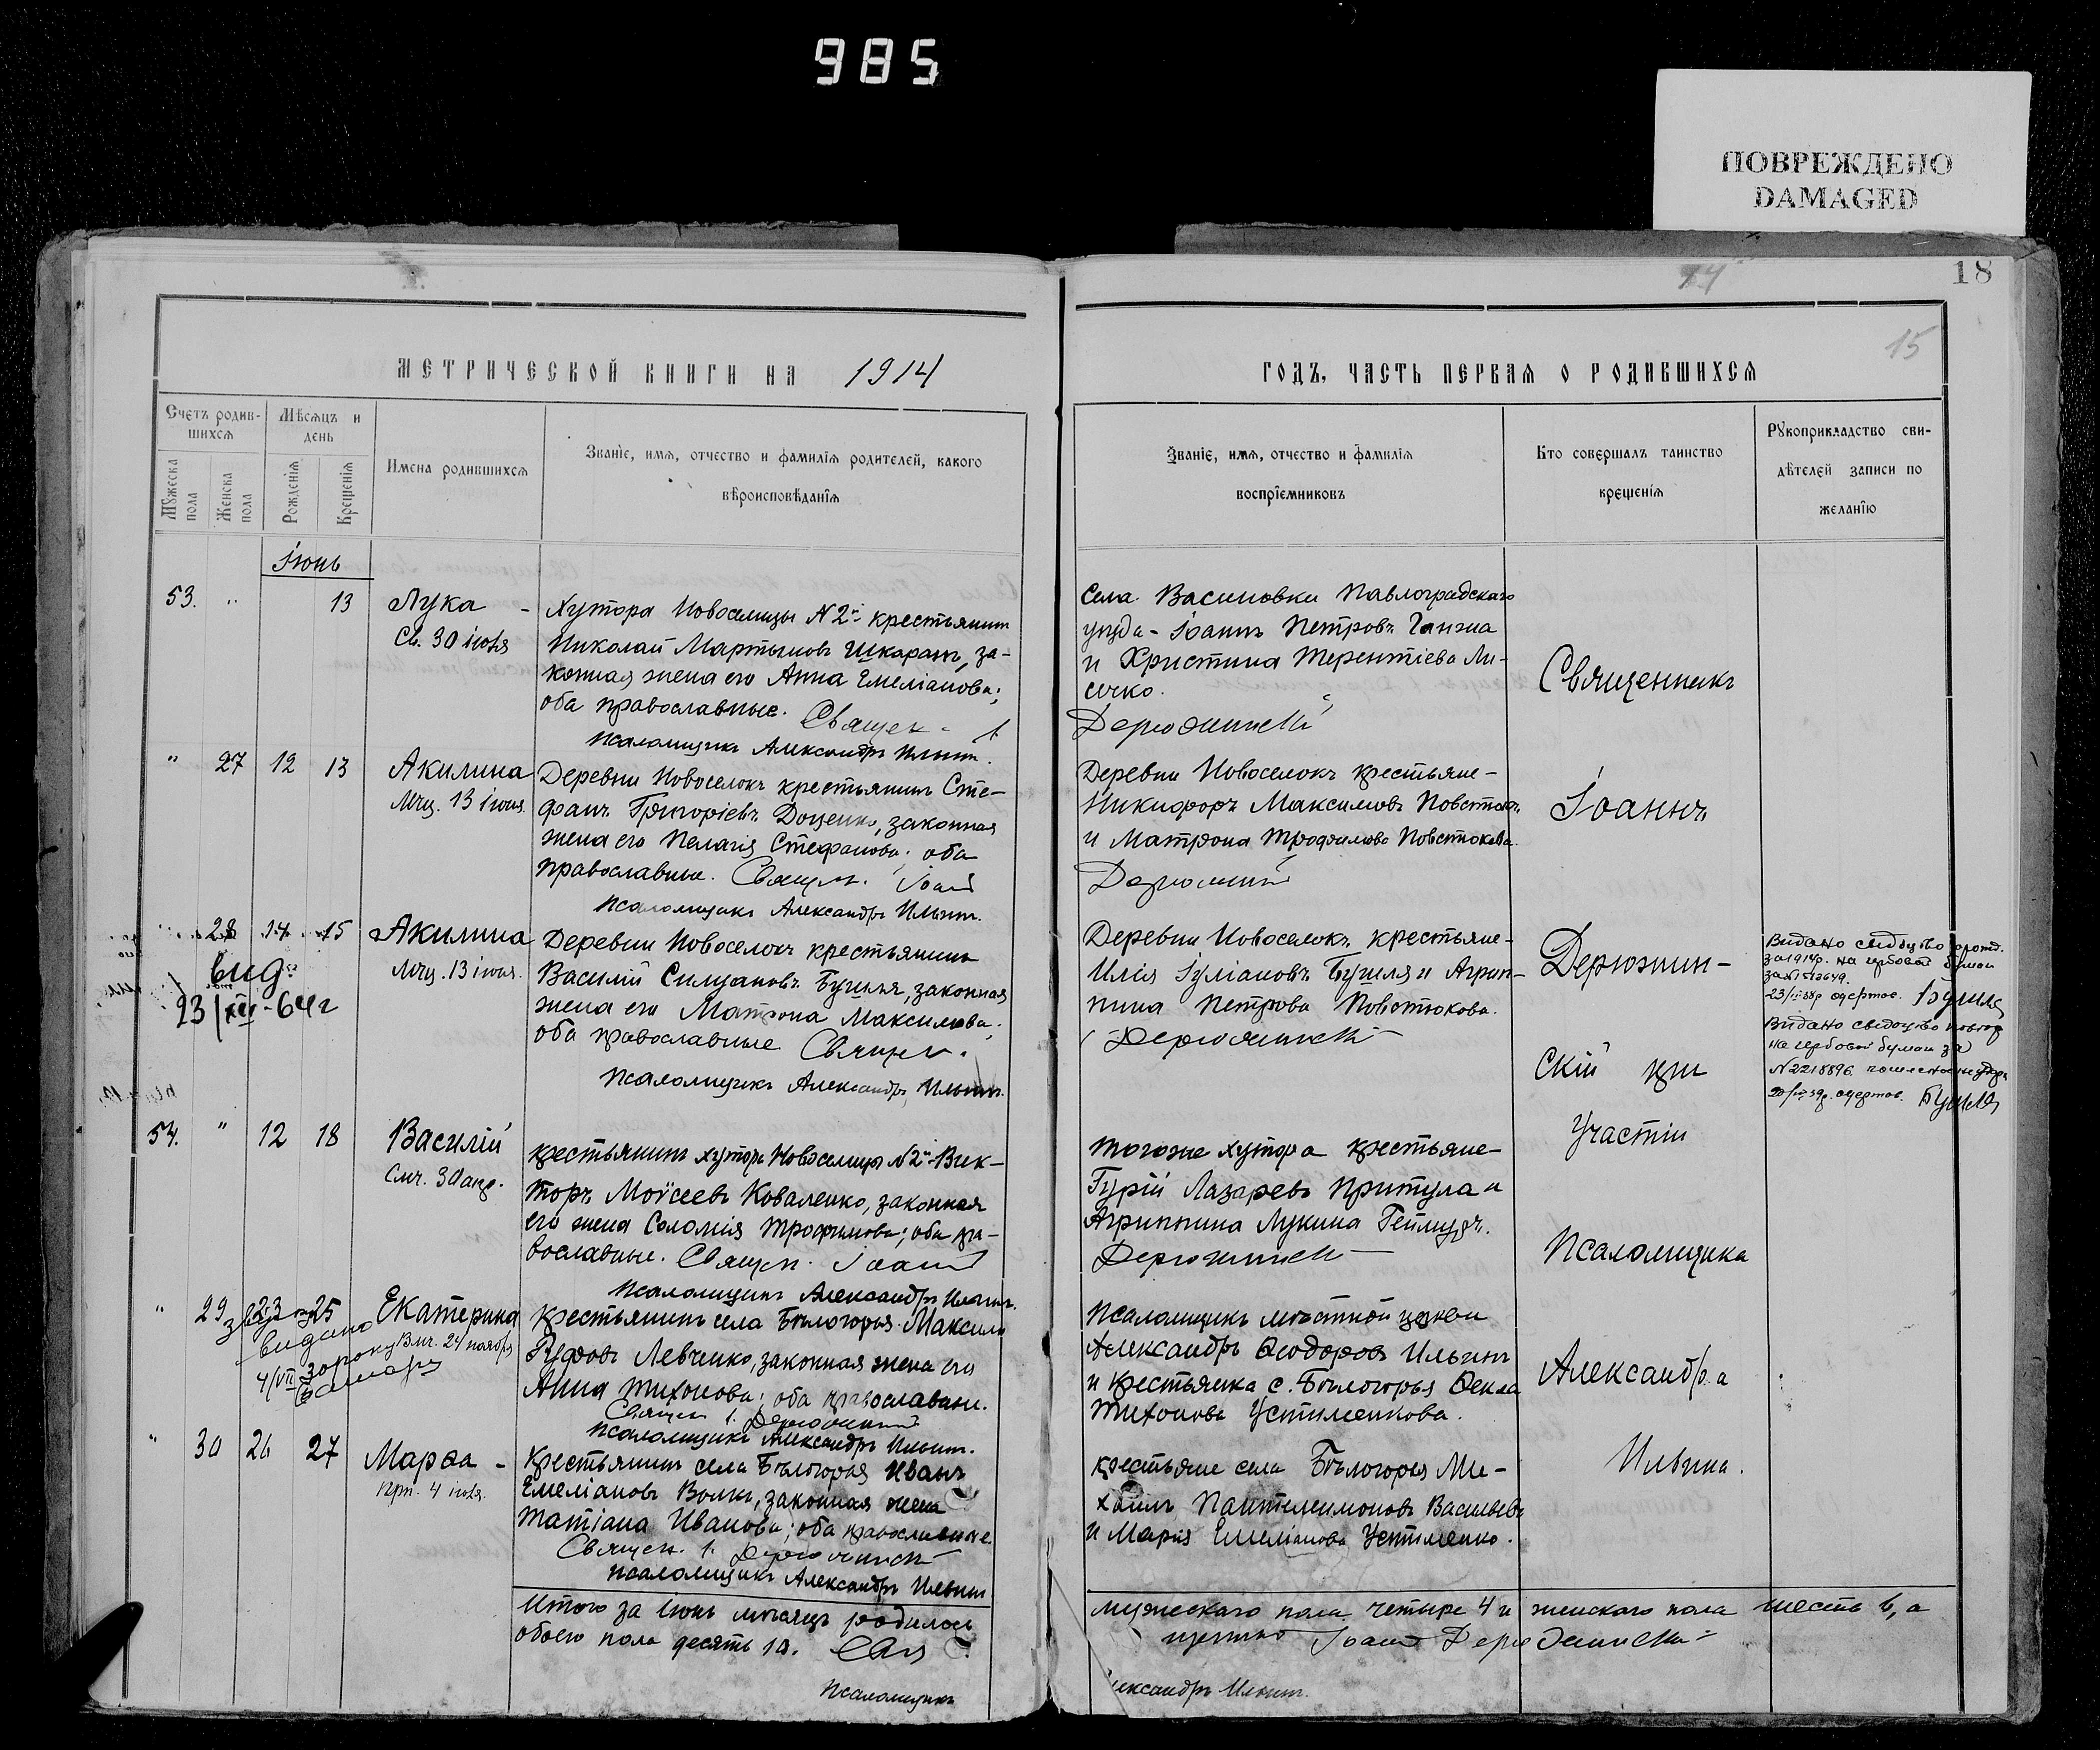 985
ПОВРЕЖДЕНО
DAMAGED
14
18
15
МЕТРИЧЕСКОЙ КНИГИ НА 1914
ГОДЪ, ЧАСТЬ ПЕРВАЯ О РОДИВШИХСЯ
Счетъ родив-
шихся
Мужеска
пола
Женска
пола
Мѣсяцъ и
день
Рожденія
Крещенія
Имена родившихся
Званіе, имя, отчество и фамилія родителей, какого
вѣроисповѣданія
Званіе, имя, отчество и фамилія
воспріемниковъ
Кто совершалъ таинство
крещенія
Рукоприкладство сви-
дѣтелей записи по
желанію
Іюнь
53. " 13 Лука
Св. 30 іюня
Хутора Новоселицы N 2й крестьянинъ
Николай Мартыновъ Шкаранъ, за-
конная жена его Анна Емеліанова;
оба православные. Священ. І.
Псаломщикъ Александръ Ильинъ.
Села Васиновки Павлоградскаго
уѣзда - Іоаннъ Петровъ Ганжа
и Христина Терентіева Ли-
сечко.
Дерюжинскій
" 27 12 13 Акилина
Мчц. 13 іюня.
Деревни Новоселокъ крестьянинъ Сте-
фанъ Григоріевъ Доценко, законная
жена его Пелагія Стефанова; оба
православные. Священ. Іоаннъ
Псаломщикъ Александръ Ильинъ.
Деревни Новоселокъ крестьяне-
Никифоръ Максимовъ
и Матрона Трофимова Повстюкова.
Дерюжинскій
" 28 14 15 Акилина
Мчц. 13 іюня.
вид.
23/XII-64г
Деревни Новоселокъ крестьянинъ
Василій Силуановъ Бушля, законная
жена его Матрона Максимова;
оба православные Священ.
Псаломщикъ Александръ Ильинъ.
Деревни Новоселокъ крестьяне-
Илія Іуліановъ Бушля и Агрип-
пина Петрова Повстюкова.
Дерюжинскій
Видано свідоцтво
за 1914р. на гербовой бумаі
одержав. Бушля
Видано свідоцтво повтор
на гербовой бумаі за
N 2218896
одержав. Бушля
54. " 12 18 Василій
Смч. 30 апр.
Крестьянинъ хутора Новоселицы N 2й Вик-
торъ Моѵсеевъ Коваленко, законная
его жена Соломія Трофимова; оба пра-
вославные. Священ. Іоаннъ
Псаломщикъ Александръ Ильинъ.
Тогоже хутора крестьяне-
Гурій Лазаревъ Притула и
Агриппина Лукина
Дерюжинскій
" 29 23 25 Екатерина
Влмч. 24 ноября
видано
4/VII 30 року
Крестьянинъ села Бѣлогорья Максимъ
Руфовъ Левченко, законная жена его
Анна Тихонова; оба православные.
Священ. І. Дерюжинскій
Псаломщикъ Александръ Ильинъ.
Псаломщикъ мѣстной церкви
Александръ Ѳеодоровъ Ильинъ
и крестьянка с. Бѣлогорья Ѳекла
Тихонова Устименкова.
" 30 26 27 Марѳа
Прп. 4 іюля.
Крестьянинъ села Бѣлогорья Иванъ
Емеліановъ Волкъ, законная жена
Татіана Иванова; оба православные.
Священ. І. Дерюжинскій
Псаломщикъ Александръ Ильинъ
Крестьяне села Бѣлогорья Ми-
хаилъ Пантелеимоновъ Васильевъ
и Марія Емеліанова Устименко.
Священникъ
Іоаннъ
Дерюжин-
скій при
участіи
Псаломщика
Александра
Ильина.
Итого за Іюнь мѣсяцъ родилось
обоего пола десять 10.
мужескаго пола четыре 4 и женскаго пола шесть 6, а
Іоаннъ Дерюжинскій
Псаломщикъ
Александръ Ильинъ.